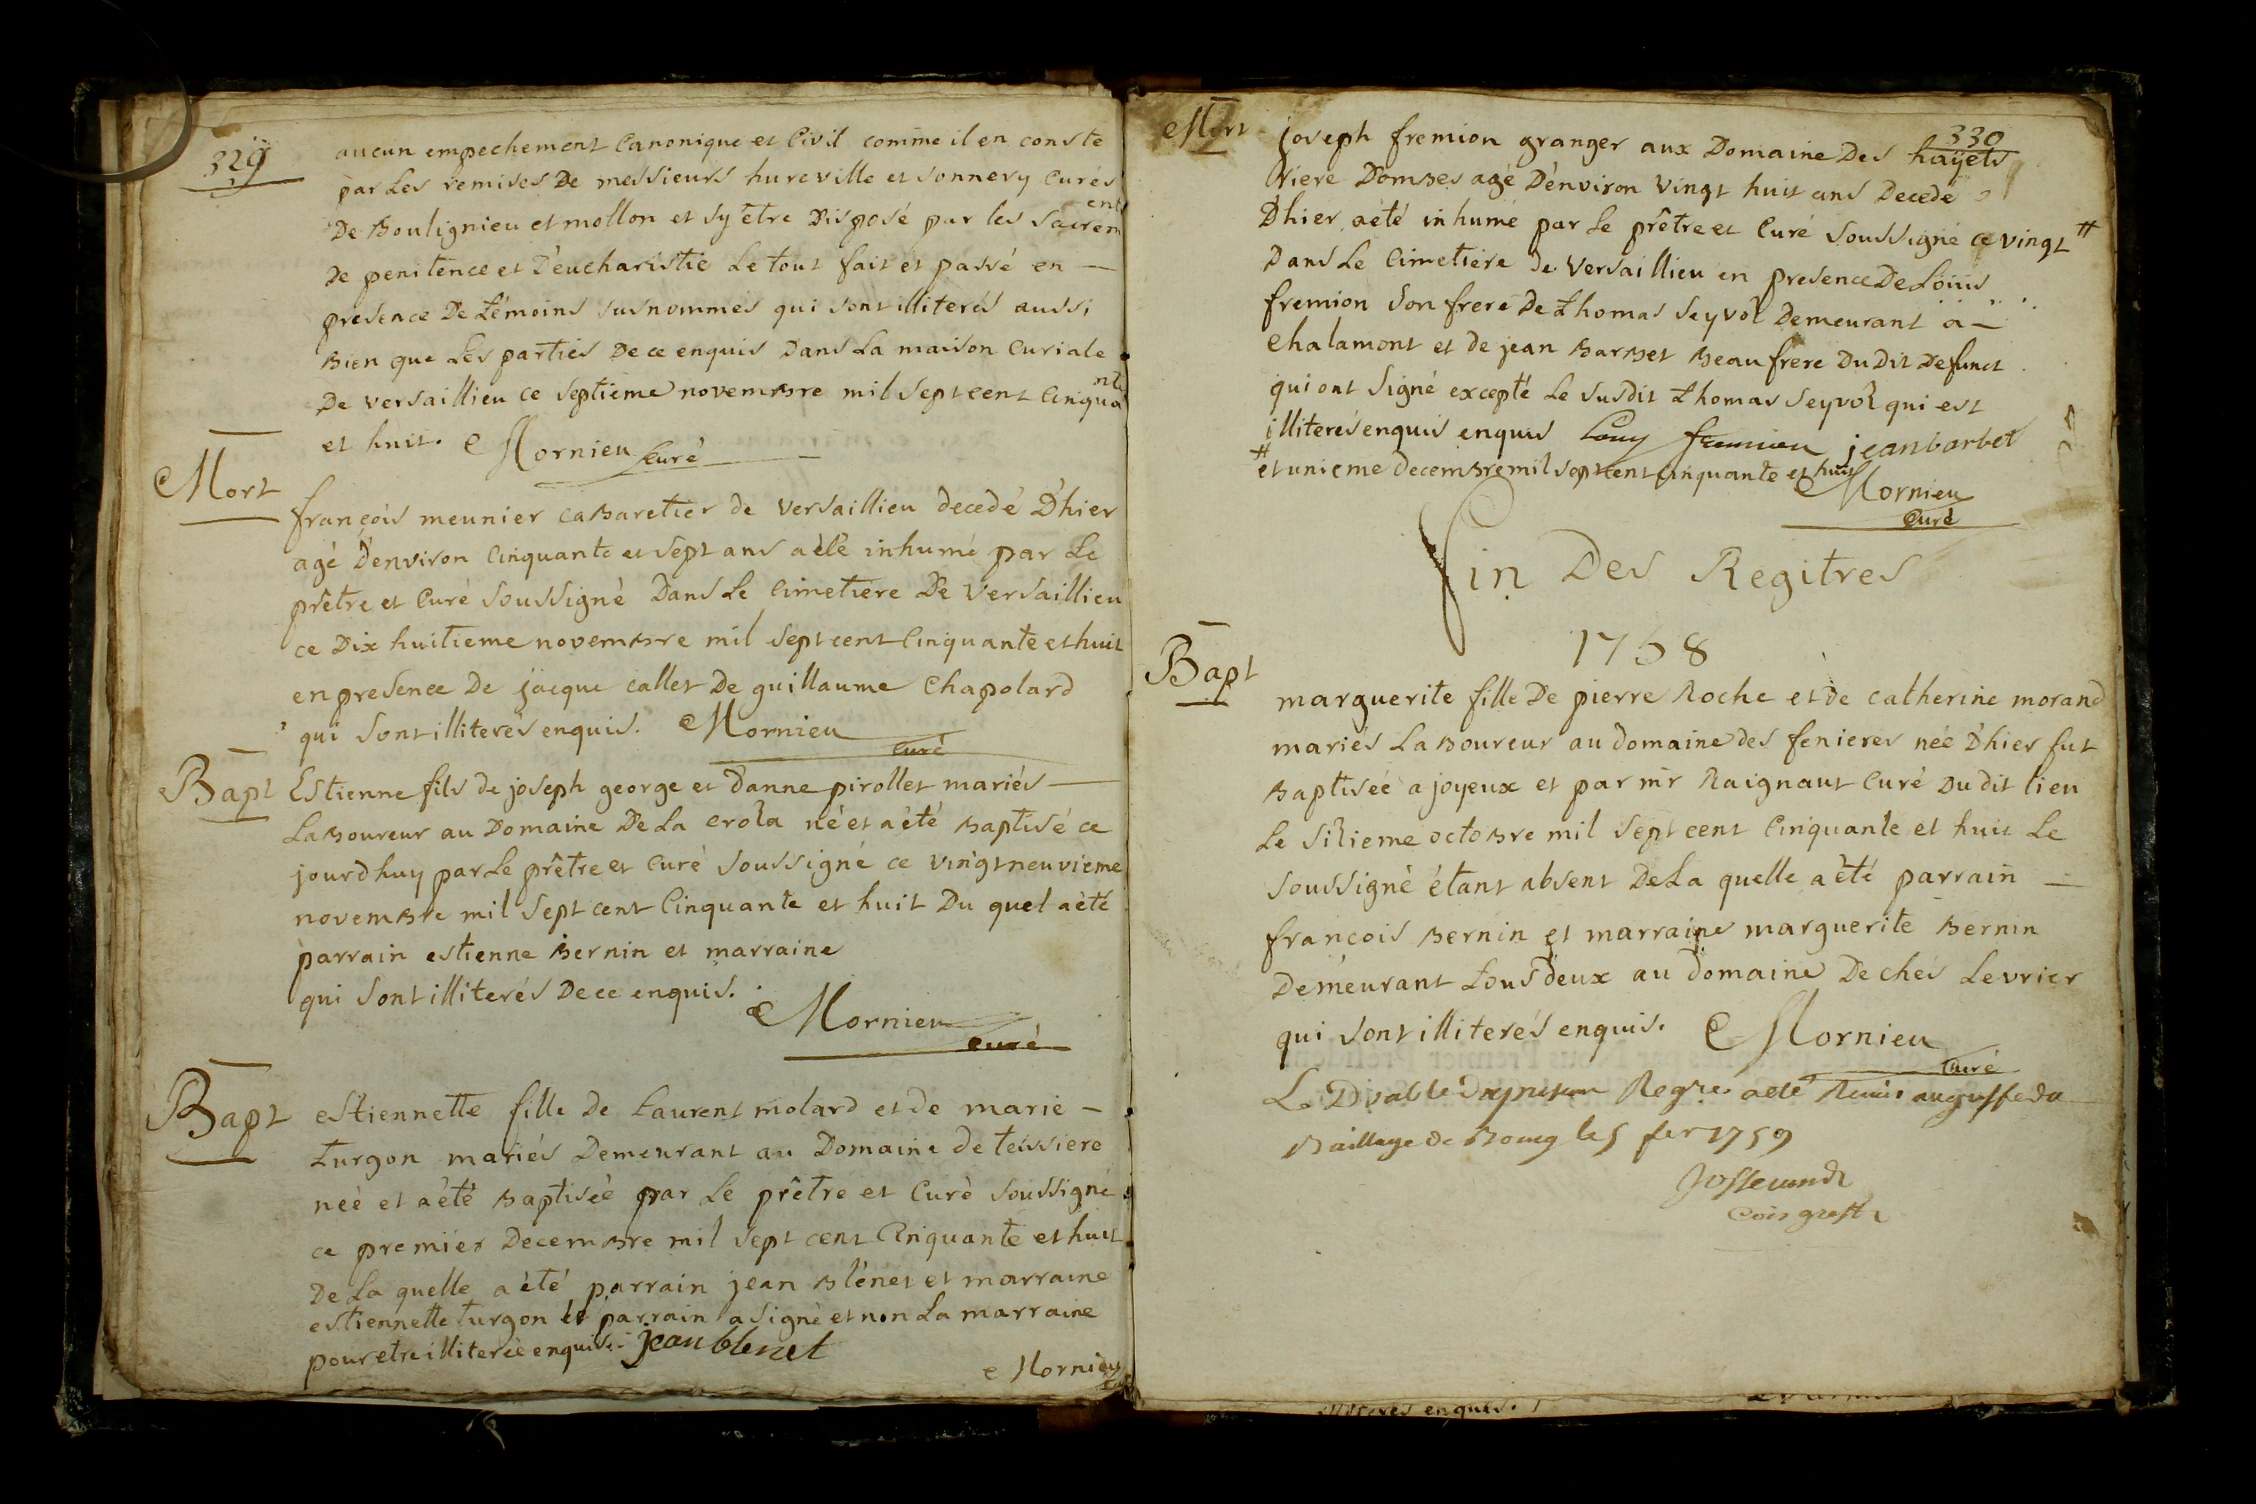 329
aucun empechement Canonique et Civil comme il en conste
par Les remises De messieurs hureville et sonnery Curés
De Boulignieu et mollon et sy etre Disposé par les Sacrements
De penitence et D'eucharistie Le tout fait et passé en —
presence De témoins susnommés qui sont illiterés aussi
Bien que Les parties De ce enquis Dans La maison Curiale
De versaillieu ce septieme novembre mil sept cent Cinquante
et huit. Mornieu Curé
Mort
françois meunier cabaretier de versaillieu decedé D'hier
agé D'environ Cinquante et sept ans a été inhumé par Le
prêtre et Curé soussigné Dans Le Cimetiere De Versaillieu
ce Dix huitieme novembre mil sept cent Cinquante et huit
en presence De jacque callet De guillaume Chapolard
qui sont illiterés enquis. Mornieu
Curé
Bapt
Estienne fils de joseph george et d'anne pirollet mariés —
Laboureur au Domaine De La crola né et a été Baptisé ce
jourd huy par Le prêtre et Curé soussigné ce vingt neuvieme
novembre mil sept cent Cinquante et huit Du quel a été
parrain estienne Bernin et marraine
qui sont illiterés De ce enquis.
Mornieu
Curé
Bapt
estiennette fille de Laurent molard et de marie —
turgon mariés Demeurant au Domaine de teissiere
neé et a été Baptisée par Le prêtre et Curé soussigné
ce premier Decembre mil sept cent Cinquante et huit
De La quelle a été parrain jean Blénet et marraine
estiennette turgon le parrain a signé et non La marraine
pour etre illiterée enquise. jean blenet
Mornieu
330
Mort
joseph fremion granger aux Domaine Des hayets
riere Dombes agé D'environ vingt huit ans Decedé
D'hier a été inhumé par Le prêtre et Curé soussigné ce vingt #
Dans Le Cimetiere de Versaillieu en presence De Loüis
fremion son frere De thomas seyvol Demeurant a —
Chalamont et de jean Barbet Beau frere Du Dit Defunct
qui ont signé excepté Le susdit thomas seyvol qui est
illiterés enquis enquis Louy fremion jean barbet
# et unieme decembre mil sept cent Cinquante et huit
Mornieu
Curé
fin Des Regitres
1758
Bapt
marguerite fille De pierre Roche et de catherine morand
mariés Laboureur au domaine des fenieres née D'hier fut
Baptisée a joyeux et par mr Raignaut Curé Du dit lieu
Le sixieme octobre mil sept cent Cinquante et huit Le
soussigné étant absent De La quelle a été parrain —
françois Bernin et marraine marguerite Bernin
Demeurant tous deux au domaine De chés Levrier
qui sont illiterés enquis. Mornieu
Curé
Le Double Du present Regre a eté Remis au greffe du
Baillage de Bourg le 5 fer 1759